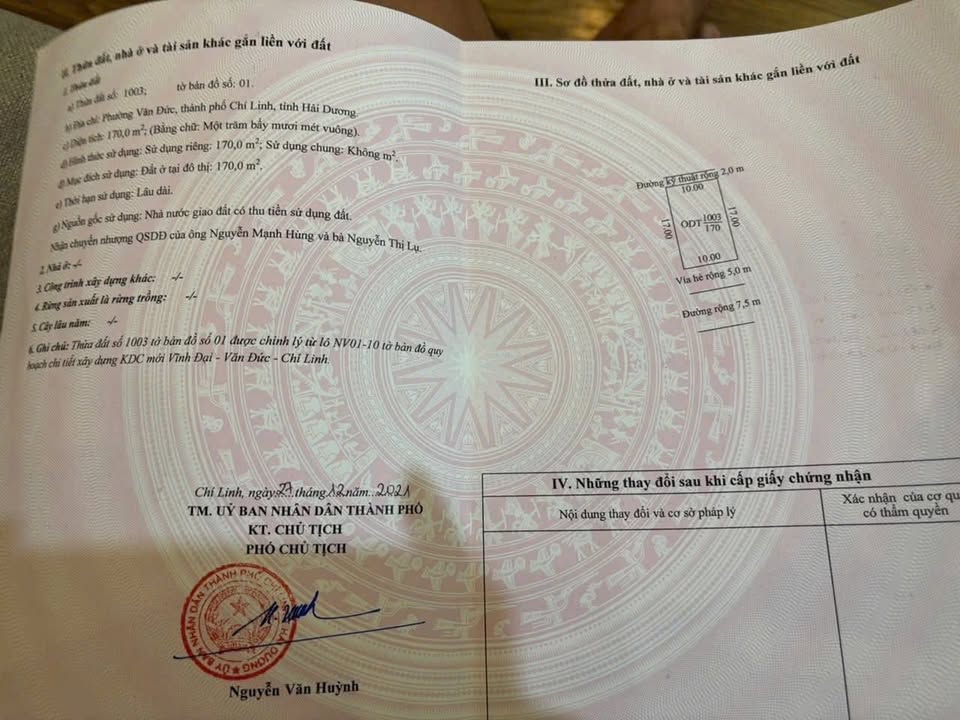 II. Thửa đất, nhà ở và tài sản khác gắn liền với đất
1. Thửa đất
a) Thửa đất số: 1003; tờ bản đồ số: 01.
b) Địa chỉ: Phường Văn Đức, thành phố Chí Linh, tỉnh Hải Dương.
c) Diện tích: 170,0 m²; (Bằng chữ: Một trăm bẩy mươi mét vuông).
d) Hình thức sử dụng: Sử dụng riêng: 170,0 m²; Sử dụng chung: Không m².
đ) Mục đích sử dụng: Đất ở tại đô thị: 170,0 m².
e) Thời hạn sử dụng: Lâu dài.
g) Nguồn gốc sử dụng: Nhà nước giao đất có thu tiền sử dụng đất.
Nhận chuyển nhượng QSDĐ của ông Nguyễn Mạnh Hùng và bà Nguyễn Thị Lụ.
2. Nhà ở: -/-
3. Công trình xây dựng khác: -/-
4. Rừng sản xuất là rừng trồng: -/-
5. Cây lâu năm: -/-
6. Ghi chú: Thửa đất số 1003 tờ bản đồ số 01 được chỉnh lý từ lô NV01-10 tờ bản đồ quy
hoạch chi tiết xây dựng KDC mới Vĩnh Đại - Văn Đức - Chí Linh.
Chí Linh, ngày 29 tháng 12 năm 2021
TM. UỶ BAN NHÂN DÂN THÀNH PHỐ
KT. CHỦ TỊCH
PHÓ CHỦ TỊCH
Nguyễn Văn Huỳnh
III. Sơ đồ thửa đất, nhà ở và tài sản khác gắn liền với đất
Đường kỹ thuật rộng 2,0 m
10.00
17.00
ODT 1003
170
17.00
10.00
Vỉa hè rộng 5,0 m
Đường rộng 7,5 m
IV. Những thay đổi sau khi cấp giấy chứng nhận
Nội dung thay đổi và cơ sở pháp lý
Xác nhận của cơ qu
có thẩm quyền